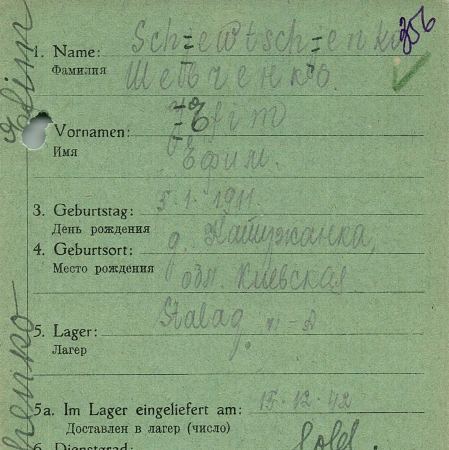 356
1. Name: Schewtschenko
Фамилия Шевченко.
2. Vornamen: Efim
Имя Ефим.
3. Geburtstag: 5.1.1911
День рождения
4. Geburtsort: д. Катюжанка,
Место рождения обл. Киевская
5. Lager: Stalag
Лагер
5a. Im Lager eingeliefert am: 15.12.42
Доставлен в лагер (число)
6. Dienstgrad: Sold.